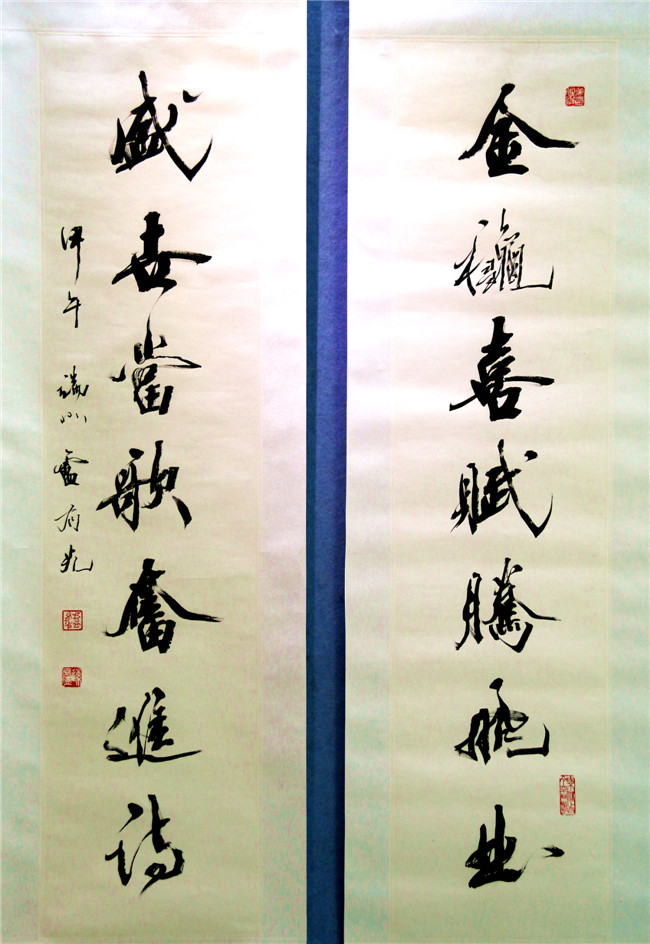 金龝喜賦騰飛曲
盛世當歌奮進詩
甲午 端州 盧有光